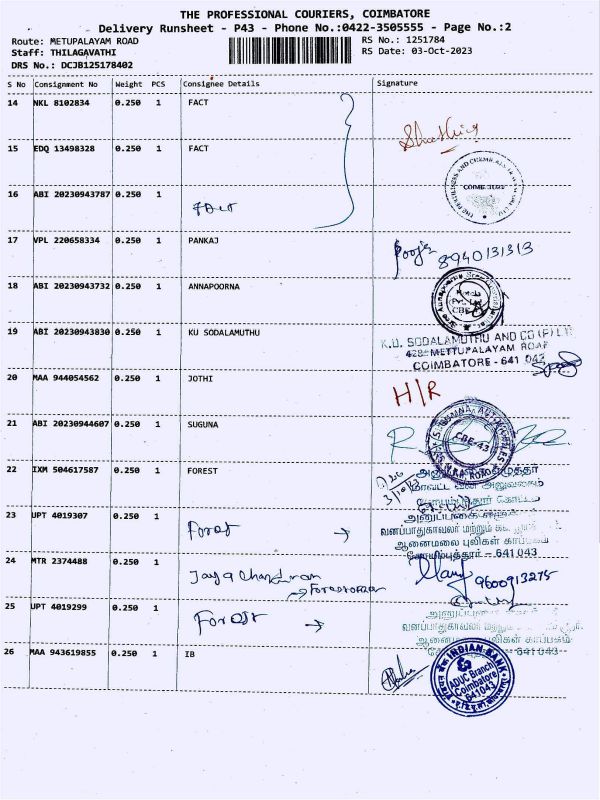 THE PROFESSIONAL COURIERS, COIMBATORE
Delivery Runsheet - P43 - Phone No.:0422-3505555 - Page No.:2
Route: METUPALAYAM ROAD
RS No.: 1251784
Staff: THILAGAVATHI
RS Date: 03-Oct-2023
DRS No.: DCJB125178402
S No Consignment No Weight PCS Consignee Details Signature
14 NKL 8102834 0.250 1 FACT
15 EDQ 13498328 0.250 1 FACT
COIMBATORE
16 ABI 20230943787 0.250 1 FACT
17 VPL 220658334 0.250 1 PANKAJ
Pooja 8940131313
18 ABI 20230943732 0.250 1 ANNAPOORNA
19 ABI 20230943830 0.250 1 KU SODALAMUTHU
K.U. SODALAMUTHU AND CO (P) LTD
428- METTUPALAYAM ROAD
COIMBATORE - 641 043
20 MAA 944054562 0.250 1 JOTHI
H/R
21 ABI 20230944607 0.250 1 SUGUNA
CBE-43
22 IXM 504617587 0.250 1 FOREST
3/10/23
23 UPT 4019307 0.250 1 Forest →
வனப்பாதுகாவலர் மற்றும்
ஆனைமலை புலிகள் காப்பகம்
கோயம்புத்தூர் - 641043
24 MTR 2374488 0.250 1 Jayachandran
9600913275
25 UPT 4019299 0.250 1 Forest →
வனப்பாதுகாவலர் மற்றும்
ஆனைமலை புலிகள் காப்பகம்
641043
26 MAA 943619855 0.250 1 IB
INDIAN BANK
ADUC Branch
Coimbatore
641043